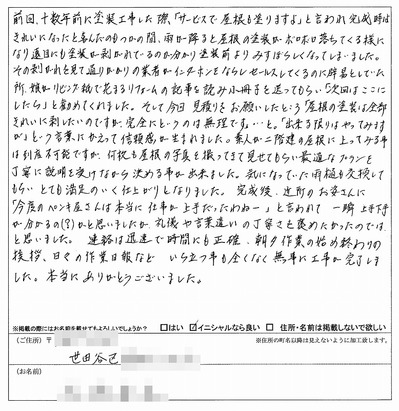 前回、十数年前に塗装工事した際「サービスで屋根も塗りますよ」と言われ完成時は
きれいになったと喜んだのもつかの間、雨が降ると屋根の塗装がボロボロ落ちてくる様に
なり遠目にも塗装が剥がれているのが分かり塗装前よりみすぼらしくなってしまいました。
その剥がれを見て通りがかりの業者がインターホンをならしセールスしてくるのに辟易としていた
所、娘がリビング紙で花まるリフォームの記事を読み小冊子を送ってもらい「次回はここに
したら」と勧めてくれました。そして今回見積りをお願いしたところ「屋根の塗装は全部
きれいに剥したいのですが、完全にというのは無理です。」と。「出来る限りはやってみます
が」という言葉にかえって信頼感が生まれました。素人が二階建の屋根に上ってみる事
は到底不可能ですが、何枚も屋根の写真を撮ってきて見せてもらい最適なプランを
丁寧に説明を受けながら決める事が出来ました。気になっていた雨樋も交換して
もらい とても満足のいく仕上がりとなりました。 完成後、近所のお客さんに
「今度のペンキ屋さんは本当に仕事が上手だったわねー」と言われて 一瞬 上手下手
が分かるの(?)かと思いましたが、礼儀や言葉遣いの丁寧さを褒めたかったのでは
と思いました。 連絡は迅速で時間にも正確、朝夕作業の始め終わりの
挨拶、日々の作業日報など いら立つ事も全くなく無事に工事が完了しま
した。本当にありがとうございました。
※掲載の際にはお名前を載せてもよろしいでしょうか? □はい ☑イニシャルなら良い □ 住所・名前は掲載しないで欲しい
(ご住所) 〒
※住所の町名以降は見えないように加工致します。
世田谷区
(お名前)